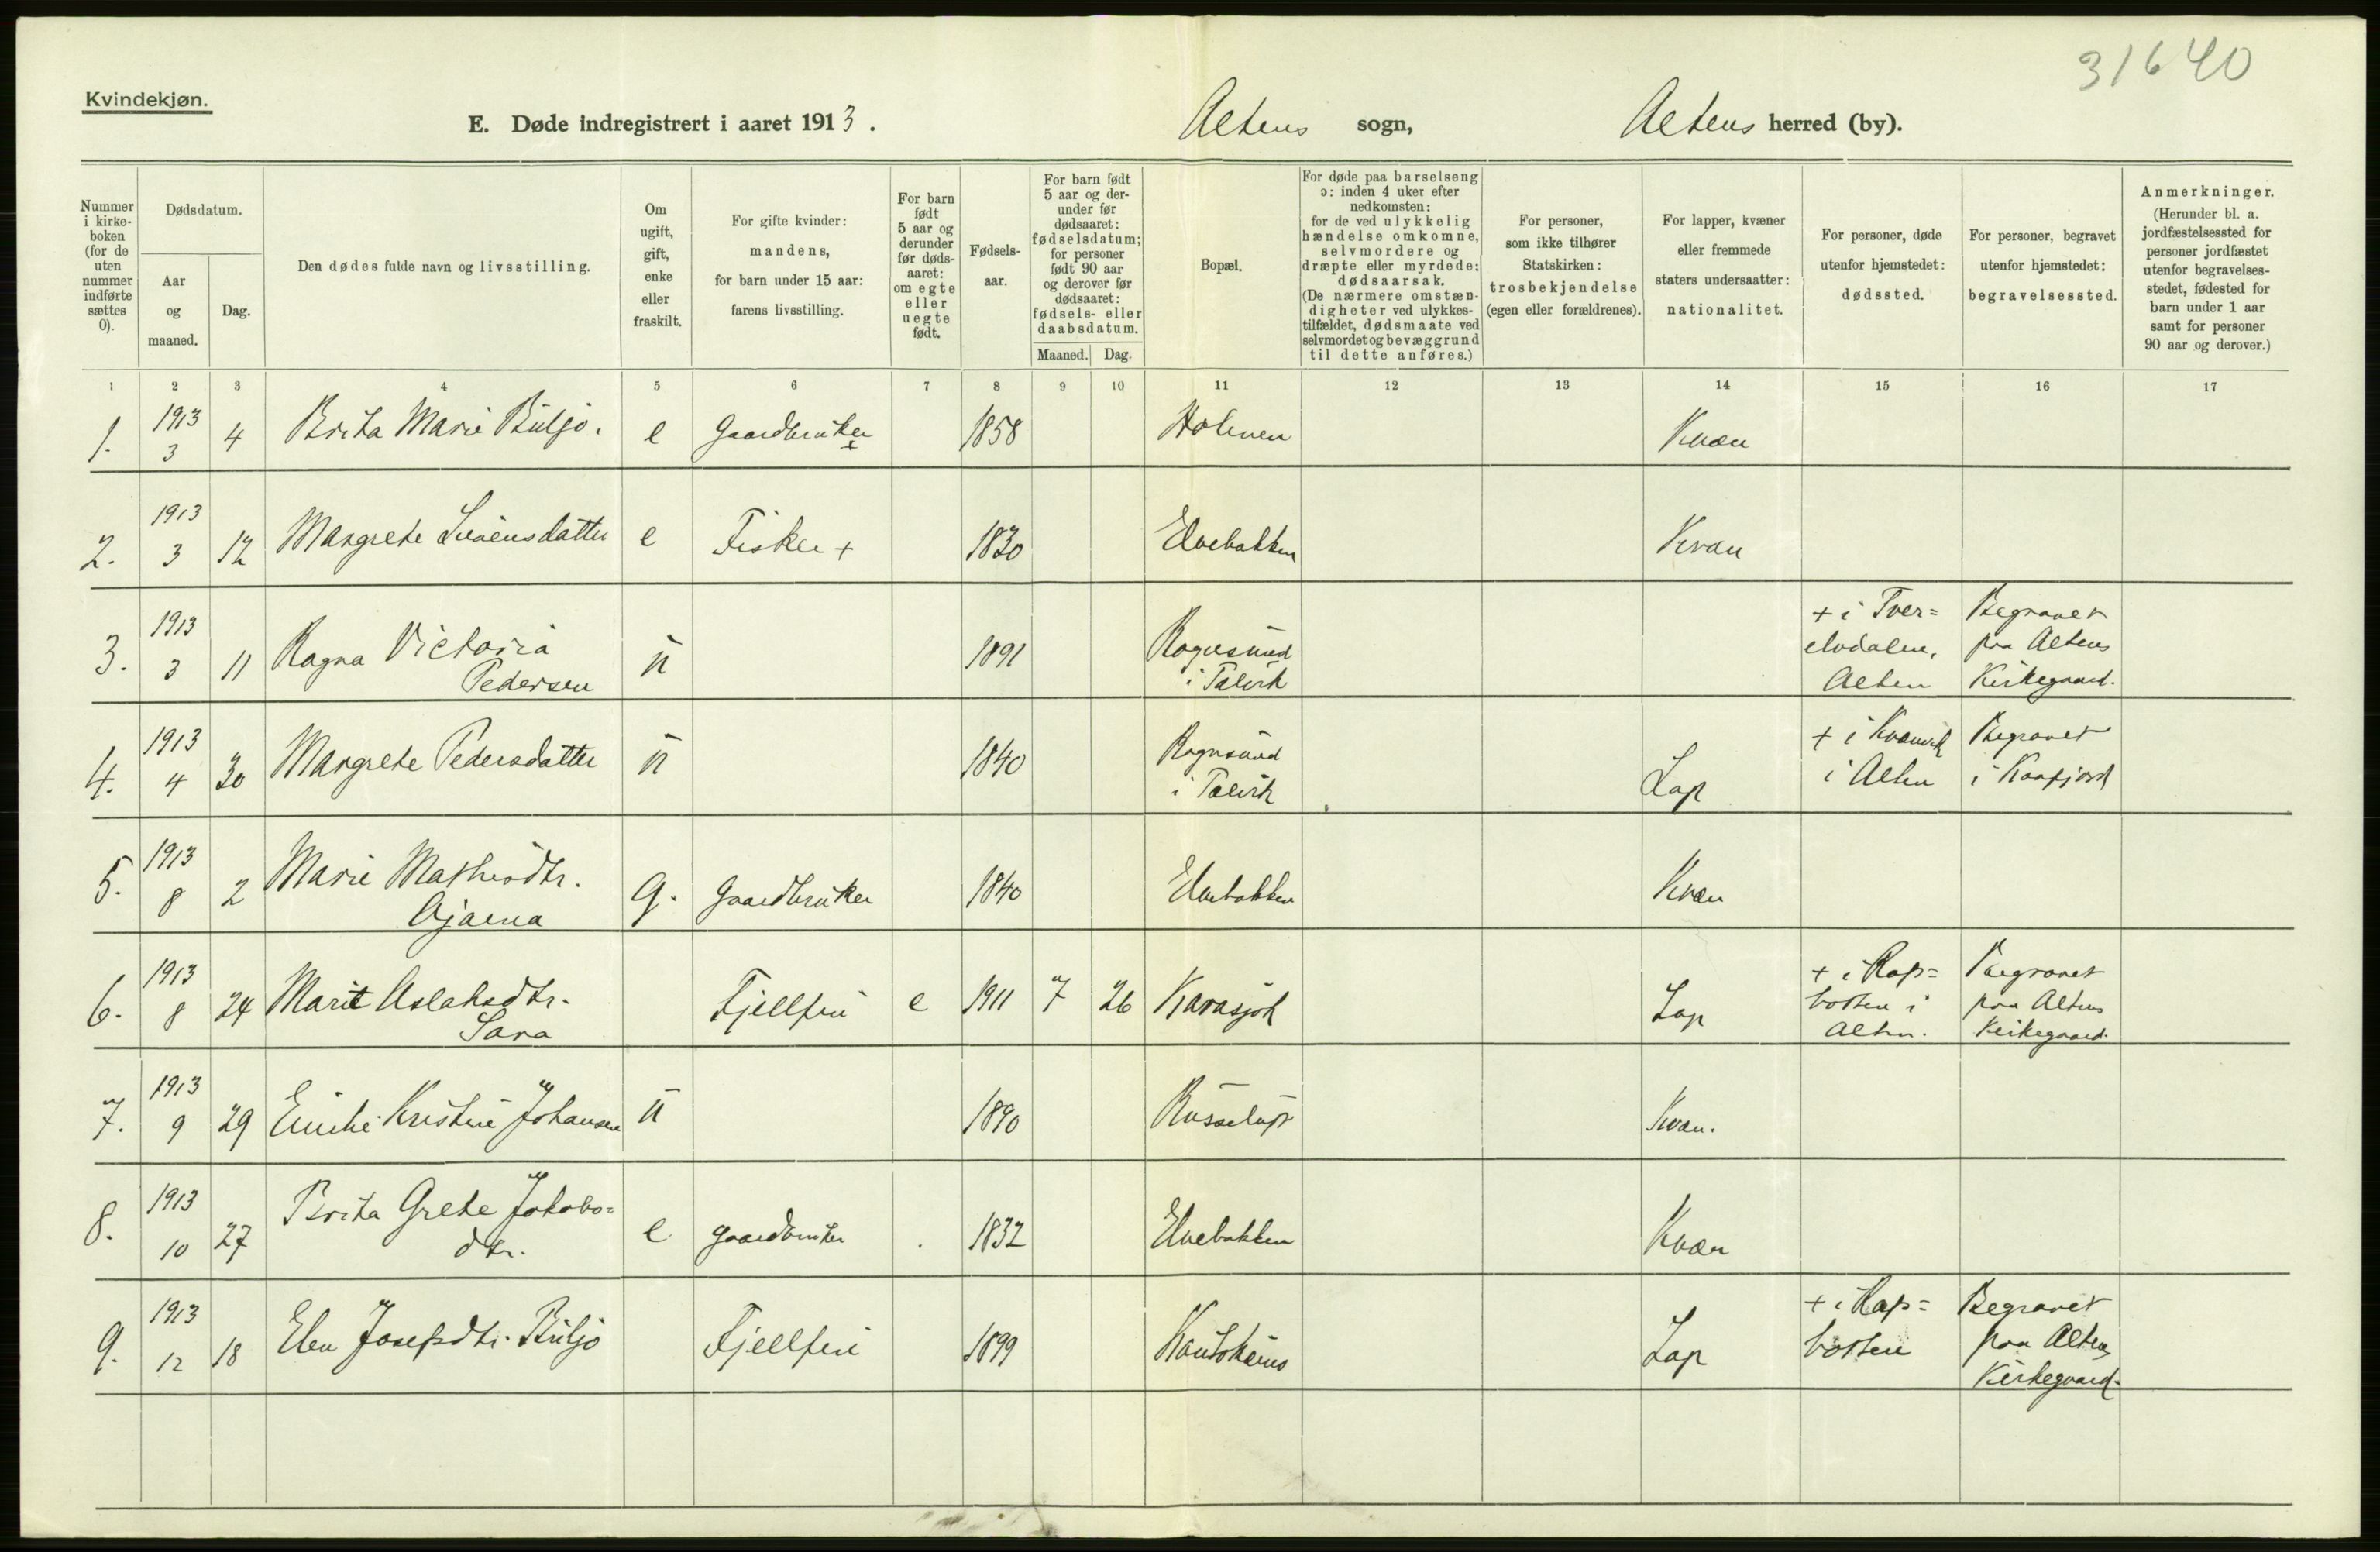 31640
Kvindekjøn.
E. Døde indregistrert i aaret 1913. Altens sogn, Altens herred (by).
Nummer i kirke-boken (for de uten nummer indførte sættes 0).
Dødsdatum.
Aar og maaned.
Dag.
Den dødes fulde navn og livsstilling.
Om ugift, gift, enke eller fraskilt.
For gifte kvinder: mandens, for barn under 15 aar: farens livsstilling.
For barn født 5 aar og derunder før døds-aaret: om egte eller uegte født.
Fødsels-aar.
For barn født 5 aar og der-under før dødsaaret: fødselsdatum; for personer født 90 aar og derover før dødsaaret: fødsels- eller daabsdatum.
Maaned. Dag.
Bopæl.
For døde paa barselseng ɔ: inden 4 uker efter nedkomsten: for de ved ulykkelig hændelse omkomne, selvmordere og dræpte eller myrdede: dødsaarsak. (De nærmere omstæn-digheter ved ulykkes-tilfældet, dødsmaate ved selvmordet og bevæggrund til dette anføres.)
For personer, som ikke tilhører Statskirken: trosbekjendelse (egen eller forældrenes).
For lapper, kvæner eller fremmede staters undersaatter: nationalitet.
For personer, døde utenfor hjemstedet: dødssted.
For personer, begravet utenfor hjemstedet: begravelsessted.
Anmerkninger. (Herunder bl. a. jordfæstelsessted for personer jordfæstet utenfor begravelses-stedet, fødested for barn under 1 aar samt for personer 90 aar og derover.)
1 2 3 4 5 6 7 8 9 10 11 12 13 14 15 16 17
1. 1913 3 4 Brita Marie Büljo. e Gaardbruker + 1858 Holmen Kvæn
2. 1913 3 12 Margrete e Fisker + 1830 Elvebakken Kvæn
3. 1913 3 11 Ragna Victoria Pedersen ū 1891 Rognsund i Talvik + i Tver=elvdalen, Alten Begravet paa Altens Kirkegaard.
4. 1913 4 30 Margrete Pedersdatter ū 1840 Rognsund i Talvik Lap + i Kvænvik i Alten Begravet i Kaafjord
5. 1913 8 2 Marie g. Gaardbruker 1840 Elvebakken Kvæn
6. 1913 8 24 Marit Aslaksdtr. Sara Fjellfin e 1911 7 26 Karasjok Lap + i Rap=botten i Alten. Begravet paa Altens Kirkegaard.
7. 1913 9 29 Kristine Johansen ū 1890 Russeluft Kvæn.
8. 1913 10 27 Brita Grete Jakobs=dtr. e gaardbruker 1832 Elvebakken Kvæn
9. 1913 12 18 Elen Josefsdtr. Büljo Fjellfin 1899 Kautokeino Lap + i Rap=botten Begravet paa Altens Kirkegaard.